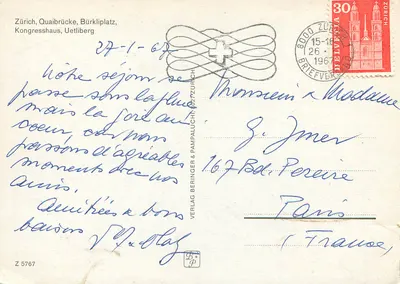 Zürich, Quaibrücke, Bürkliplatz,
Kongresshaus, Uetliberg
27-1-67
Nôtre séjour se
passe sous la pluie
mais la joie au
cœur, car nous
passons d'agréables
moments avec nos
amis.
Amitiés & bons
baisers
Z 5767
VERLAG BERINGER & PAMPALUCHI
8000 ZÜRICH
15-18
26.
1967
BRIEFVER
30
HELVETIA
Monsieur & Madame
G.
167 Bd. Pereire
Paris
(France)